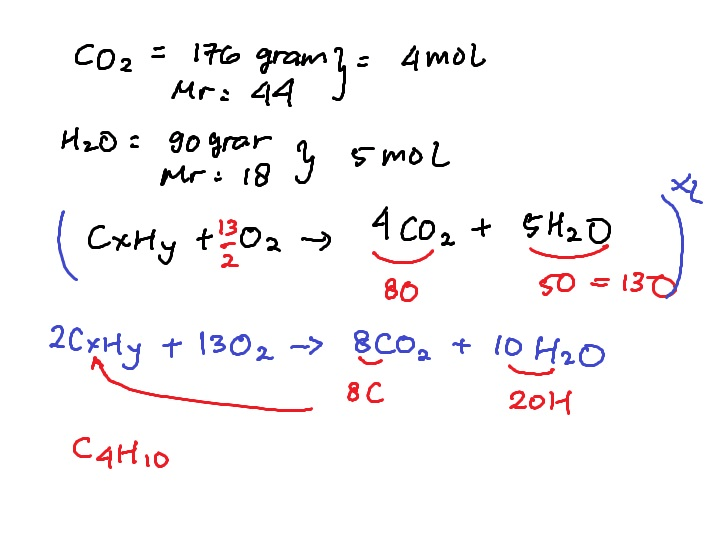 CO2 = 176 gram } = 4 mol
Mr = 44
H2O = 90 grar } 5 mol
Mr = 18
( CxHy + 13/2 O2 → 4CO2 + 5H2O ) x2
8O 5O = 13O
2CxHy + 13O2 → 8CO2 + 10H2O
8C 20H
C4H10